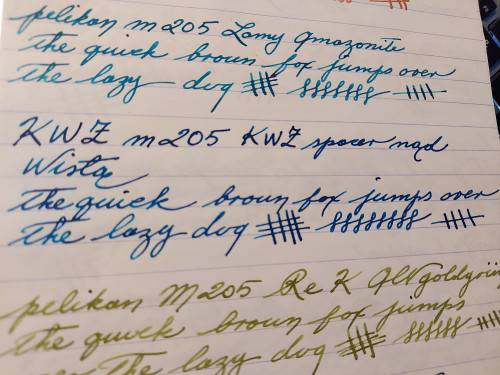 pelikan m205 Lamy Amazonite
the quick brown fox jumps over
the lazy dog
KWZ m205 KWZ spacer nad
Wisłą
the quick brown fox jumps over
the lazy dog
pelikan M205 R&K Alt goldgrün
the quick brown fox jumps
over the lazy dog